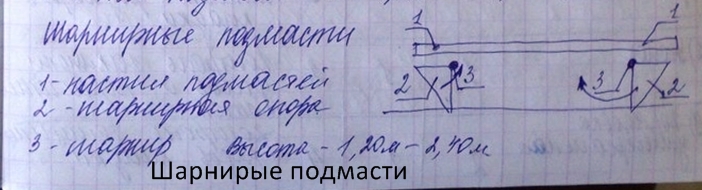 Шарнирные подмасти
1 1
1 - настил подмастей
2 3 3 2
2 - шарнирная опора
3 - шарнир Высота - 1,20м - 2,40м
Шарнирые подмасти